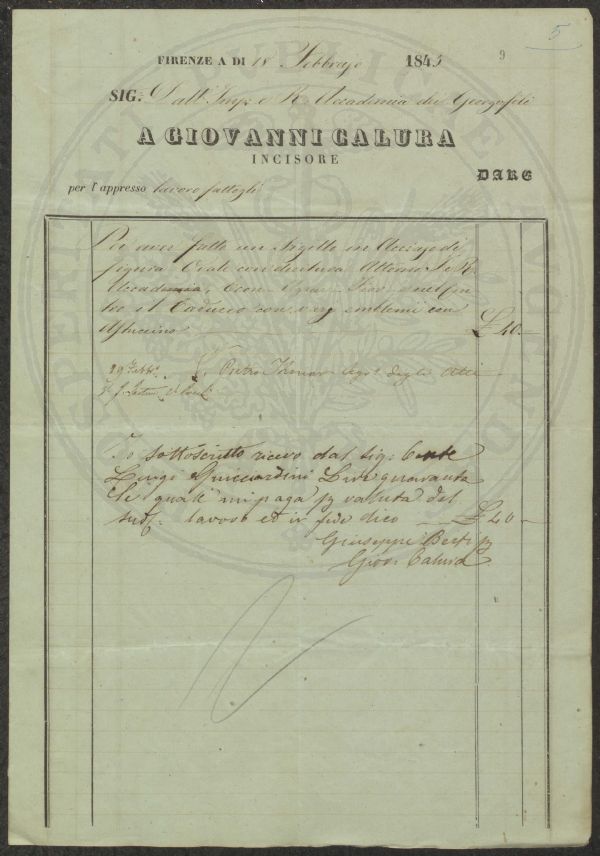 5
9
FIRENZE A DI 18 Febbrajo 1845
SIG: Dall'Imp: e R. Accademia dei Georgofili
A GIOVANNI CALURA
INCISORE
DARE
per l'appresso lavoro fattogli
Per aver fatto un Sigillo in Acciajo di
figura Ovale con dicitura Attorno I. e R.
Accademia, Econ: Agrar: e nel Cen
tro il Caduceo con varj emblemi con
Astuccino £ 40.—
19 Febb.
Pietro degli Atti
Io sottoscritto ricevo dal sig: Conte
Luigi Guicciardini Lire quaranta
le quali mi paga p valuta del
sud: lavoro ed in fede dico — £ 40 —
Giuseppe Berti p
Giov: Calura
PROSPERITATI PUBLICAE AUGENDAE